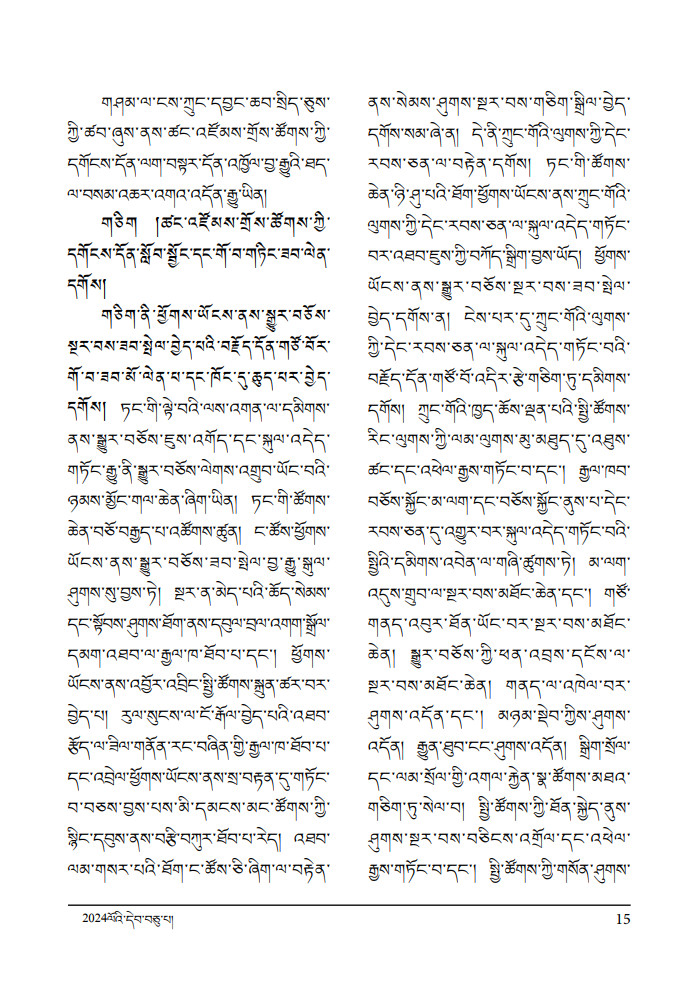 གཤམ་ལ་ངས་ཀྲུང་དབྱང་ཆབ་སྲིད་ཅུས་
ཀྱི་ཚབ་ཞུས་ནས་ཚང་འཛོམས་གྲོས་ཚོགས་ཀྱི་
དགོངས་དོན་ལག་བསྟར་དོན་འཁྱོལ་བྱ་རྒྱུའི་ཐད་
ལ་བསམ་འཆར་འགའ་འདོན་རྒྱུ་ཡིན།
གཅིག །ཚང་འཛོམས་གྲོས་ཚོགས་ཀྱི་
དགོངས་དོན་སློབ་སྦྱོང་དང་གོ་བ་གཏིང་ཟབ་ལེན་
དགོས།
གཅིག་ནི་ཕྱོགས་ཡོངས་ནས་སྒྱུར་བཅོས་
སྔར་བས་ཟབ་སྤེལ་བྱེད་པའི་བརྗོད་དོན་གཙོ་བོར་
གོ་བ་ཟབ་མོ་ལེན་པ་དང་ཁོང་དུ་ཆུད་པར་བྱེད་
དགོས། ཏང་གི་ལྟེ་བའི་ལས་འགན་ལ་དམིགས་
ནས་སྒྱུར་བཅོས་ཇུས་འགོད་དང་སྐུལ་འདེད་
གཏོང་རྒྱུ་ནི་སྒྱུར་བཅོས་ལེགས་འགྲུབ་ཡོང་བའི་
ཉམས་མྱོང་གལ་ཆེན་ཞིག་ཡིན། ཏང་གི་ཚོགས་
ཆེན་བཅོ་བརྒྱད་པ་འཚོགས་ཚུན། ང་ཚོས་ཕྱོགས་
ཡོངས་ནས་སྒྱུར་བཅོས་ཟབ་སྤེལ་བྱ་རྒྱུ་སྐུལ་
ཤུགས་སུ་བྱས་ཏེ། སྔར་ན་མེད་པའི་ཆོད་སེམས་
དང་སྟོབས་ཤུགས་ཐོག་ནས་དབུལ་བྲལ་འགག་སྒྲོལ་
དམག་འཐབ་ལ་རྒྱལ་ཁ་ཐོབ་པ་དང་། ཕྱོགས་
ཡོངས་ནས་འབྱོར་འབྲིང་སྤྱི་ཚོགས་སྐྲུན་ཚར་བར་
བྱེད་པ། རུལ་སུངས་ལ་ངོ་རྒོལ་བྱེད་པའི་འཐབ་
རྩོད་ལ་ཟིལ་གནོན་རང་བཞིན་གྱི་རྒྱལ་ཁ་ཐོབ་པ་
དང་འབྲེལ་ཕྱོགས་ཡོངས་ནས་སྲ་བརྟན་དུ་གཏོང་
བ་བཅས་བྱས་པས་མི་དམངས་མང་ཚོགས་ཀྱི་
སྙིང་དབུས་ནས་བརྩི་བཀུར་ཐོབ་པ་རེད། འཐབ་
ལམ་གསར་པའི་ཐོག་ང་ཚོས་ཅི་ཞིག་ལ་བརྟེན་
ནས་སེམས་ཤུགས་སྔར་བས་གཅིག་སྒྲིལ་བྱེད་
དགོས་སམ་ཞེ་ན། དེ་ནི་ཀྲུང་གོའི་ལུགས་ཀྱི་དེང་
རབས་ཅན་ལ་བརྟེན་དགོས། ཏང་གི་ཚོགས་
ཆེན་ཉི་ཤུ་པའི་ཐོག་ཕྱོགས་ཡོངས་ནས་ཀྲུང་གོའི་
ལུགས་ཀྱི་དེང་རབས་ཅན་ལ་སྐུལ་འདེད་གཏོང་
བར་འཐབ་ཇུས་ཀྱི་བཀོད་སྒྲིག་བྱས་ཡོད། ཕྱོགས་
ཡོངས་ནས་སྒྱུར་བཅོས་སྔར་བས་ཟབ་སྤེལ་
བྱེད་དགོས་ན། ངེས་པར་དུ་ཀྲུང་གོའི་ལུགས་
ཀྱི་དེང་རབས་ཅན་ལ་སྐུལ་འདེད་གཏོང་བའི་
བརྗོད་དོན་གཙོ་བོ་འདིར་རྩེ་གཅིག་ཏུ་དམིགས་
དགོས། ཀྲུང་གོའི་ཁྱད་ཆོས་ལྡན་པའི་སྤྱི་ཚོགས་
རིང་ལུགས་ཀྱི་ལམ་ལུགས་མུ་མཐུད་དུ་འཐུས་
ཚང་དང་འཕེལ་རྒྱས་གཏོང་བ་དང་། རྒྱལ་ཁབ་
བཅོས་སྐྱོང་མ་ལག་དང་བཅོས་སྐྱོང་ནུས་པ་དེང་
རབས་ཅན་དུ་འགྱུར་བར་སྐུལ་འདེད་གཏོང་བའི་
སྤྱིའི་དམིགས་འབེན་ལ་གཞི་ཚུགས་ཏེ། མ་ལག་
འདུས་གྲུབ་ལ་སྔར་བས་མཐོང་ཆེན་དང་། གཙོ་
གནད་འབུར་ཐོན་ཡོང་བར་སྔར་བས་མཐོང་
ཆེན། སྒྱུར་བཅོས་ཀྱི་ཕན་འབྲས་དངོས་ལ་
སྔར་བས་མཐོང་ཆེན། གནད་ལ་འཁེལ་བར་
ཤུགས་འདོན་དང་། མཉམ་སྡེབ་ཀྱིས་ཤུགས་
འདོན། རྒྱུན་ཐུབ་ངང་ཤུགས་འདོན། སྒྲིག་སྲོལ་
དང་ལམ་སྲོལ་གྱི་འགལ་རྐྱེན་སྣ་ཚོགས་མཐའ་
གཅིག་ཏུ་སེལ་བ། སྤྱི་ཚོགས་ཀྱི་ཐོན་སྐྱེད་ནུས་
ཤུགས་སྔར་བས་བཅིངས་འགྲོལ་དང་འཕེལ་
རྒྱས་གཏོང་བ་དང་། སྤྱི་ཚོགས་ཀྱི་གསོན་ཤུགས་
2024ལོའི་དེབ་བཅུ་པ། 15